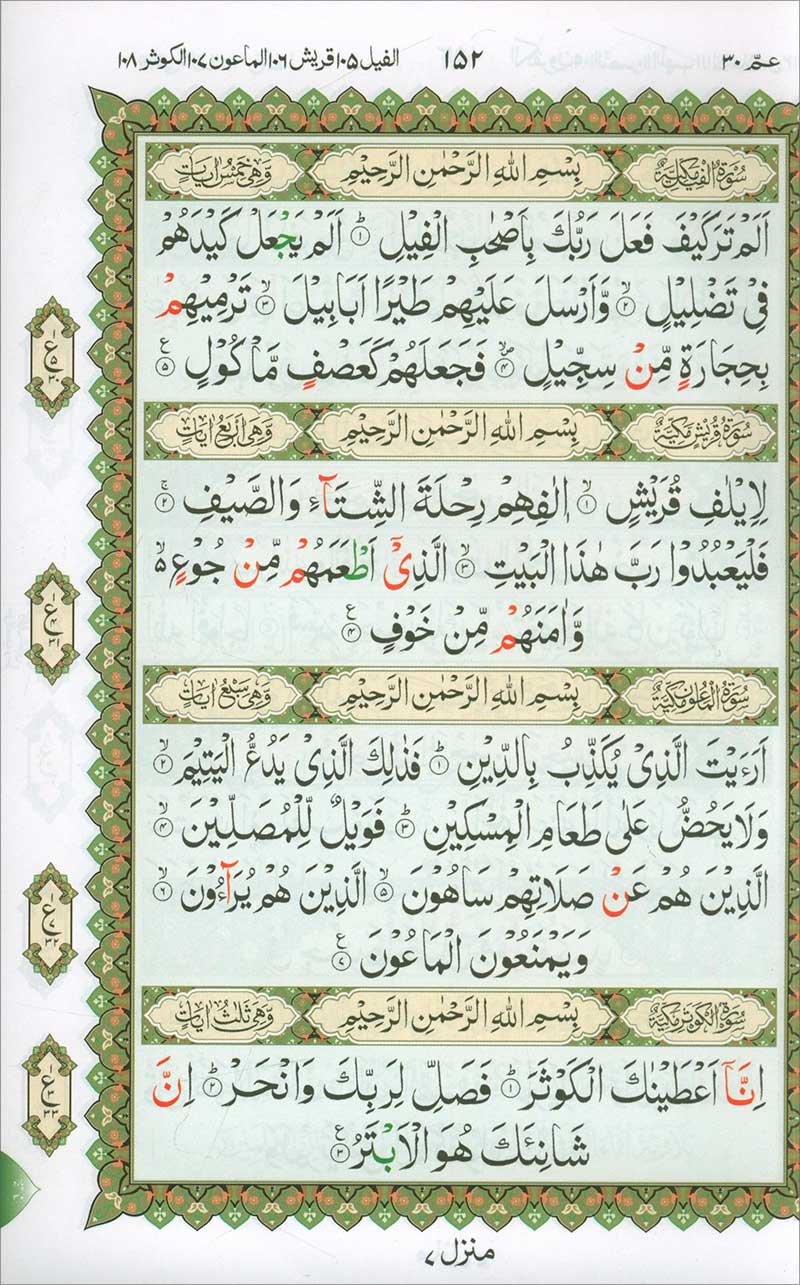 عمّ ٣٠ ١٥٢ الفيل ١٠٥ قريش ١٠٦ الماعون ١٠٧ الكوثر ١٠٨
سُوْرَةُ الْفِيْلِ مَكِّيَّةٌ بِسْمِ اللهِ الرَّحْمٰنِ الرَّحِيْمِ وَّهِيَ خَمْسُ اٰيَاتٍ
اَلَمْ تَرَ كَيْفَ فَعَلَ رَبُّكَ بِاَصْحٰبِ الْفِيْلِ ؕ۝۱ اَلَمْ يَجْعَلْ كَيْدَهُمْ
فِيْ تَضْلِيْلٍ ۙ۝۲ وَّاَرْسَلَ عَلَيْهِمْ طَيْرًا اَبَابِيْلَ ۙ۝۳ تَرْمِيْهِمْ
بِحِجَارَةٍ مِّنْ سِجِّيْلٍ ۪ۙ۝۴ فَجَعَلَهُمْ كَعَصْفٍ مَّاْكُوْلٍ ۝۵ ع
سُوْرَةُ قُرَيْشٍ مَكِّيَّةٌ بِسْمِ اللهِ الرَّحْمٰنِ الرَّحِيْمِ وَّهِيَ اَرْبَعُ اٰيَاتٍ
لِاِيْلٰفِ قُرَيْشٍ ۙ۝۱ اٖلٰفِهِمْ رِحْلَةَ الشِّتَآءِ وَالصَّيْفِ ۚ۝۲
فَلْيَعْبُدُوْا رَبَّ هٰذَا الْبَيْتِ ۙ۝۳ الَّذِيْٓ اَطْعَمَهُمْ مِّنْ جُوْعٍ ۙ۬
وَّاٰمَنَهُمْ مِّنْ خَوْفٍ ۝۴ ع
سُوْرَةُ الْمَاعُوْنِ مَكِّيَّةٌ بِسْمِ اللهِ الرَّحْمٰنِ الرَّحِيْمِ وَّهِيَ سَبْعُ اٰيَاتٍ
اَرَءَيْتَ الَّذِيْ يُكَذِّبُ بِالدِّيْنِ ؕ۝۱ فَذٰلِكَ الَّذِيْ يَدُعُّ الْيَتِيْمَ ۙ۝۲
وَلَا يَحُضُّ عَلٰى طَعَامِ الْمِسْكِيْنِ ؕ۝۳ فَوَيْلٌ لِّلْمُصَلِّيْنَ ۙ۝۴
الَّذِيْنَ هُمْ عَنْ صَلَاتِهِمْ سَاهُوْنَ ۙ۝۵ الَّذِيْنَ هُمْ يُرَآءُوْنَ ۙ۝۶
وَيَمْنَعُوْنَ الْمَاعُوْنَ ۝۷ ع
سُوْرَةُ الْكَوْثَرِ مَكِّيَّةٌ بِسْمِ اللهِ الرَّحْمٰنِ الرَّحِيْمِ وَّهِيَ ثَلٰثُ اٰيَاتٍ
اِنَّآ اَعْطَيْنٰكَ الْكَوْثَرَ ؕ۝۱ فَصَلِّ لِرَبِّكَ وَانْحَرْ ؕ۝۲ اِنَّ
شَانِئَكَ هُوَ الْاَبْتَرُ ۝۳ ع
منزل ٧